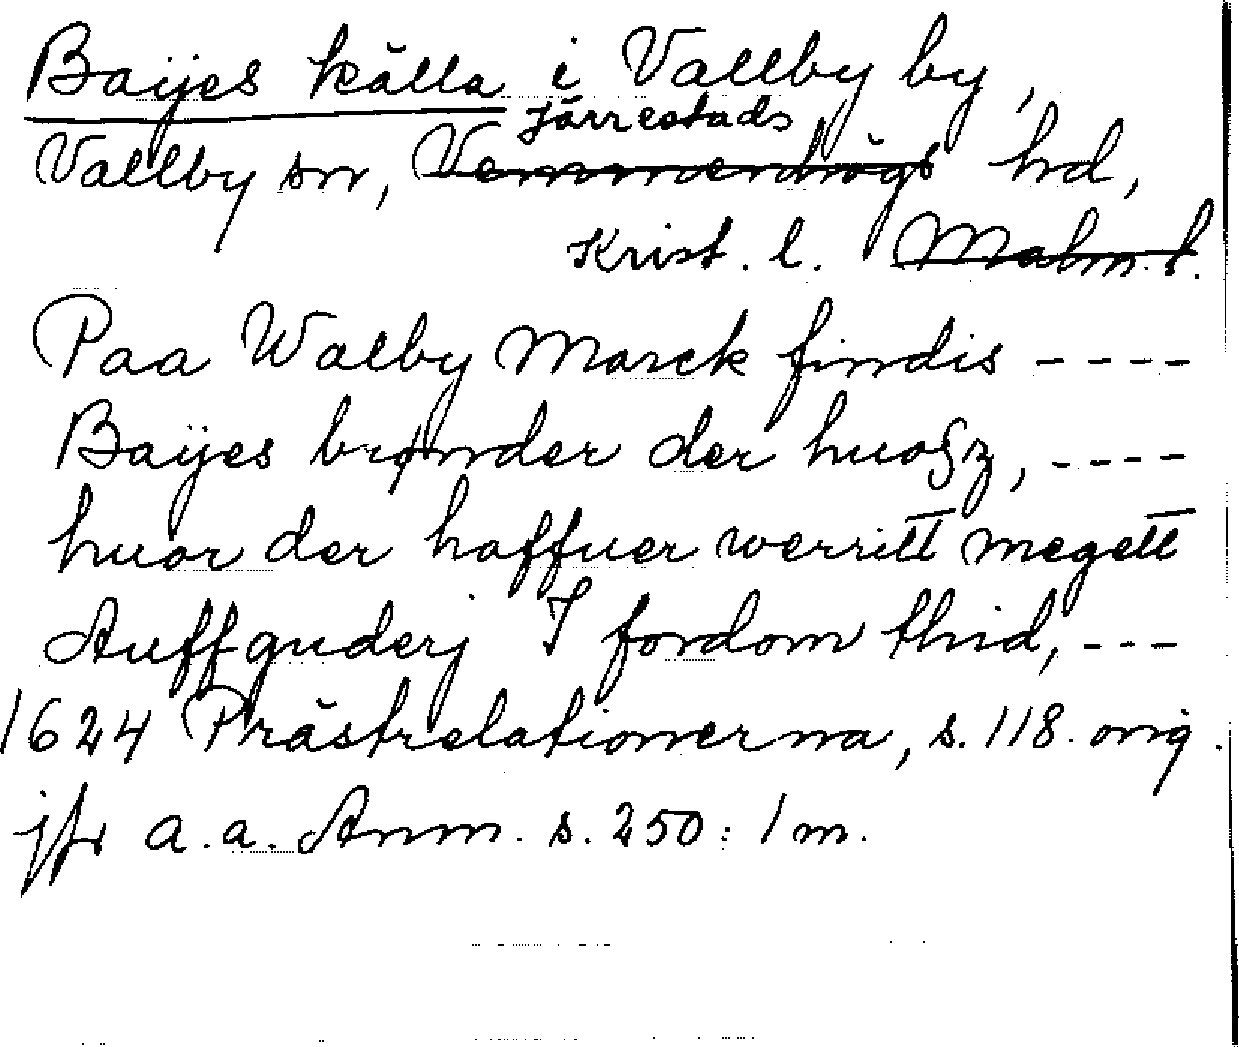 Baÿes källa i Vallby by,
Järrestads
Vallby sn, Vemmenhögs hd,
Krist. l. Malm. l.
Paa Walby Marck findis ----
Baÿes brønder der huoſz, ----
huor der haffuer werritt megett
Auffguderj I fordom thid, ---
1624 Prästrelationerna, s. 118. orig.
jfr a.a. Anm. s. 250: 1 m.